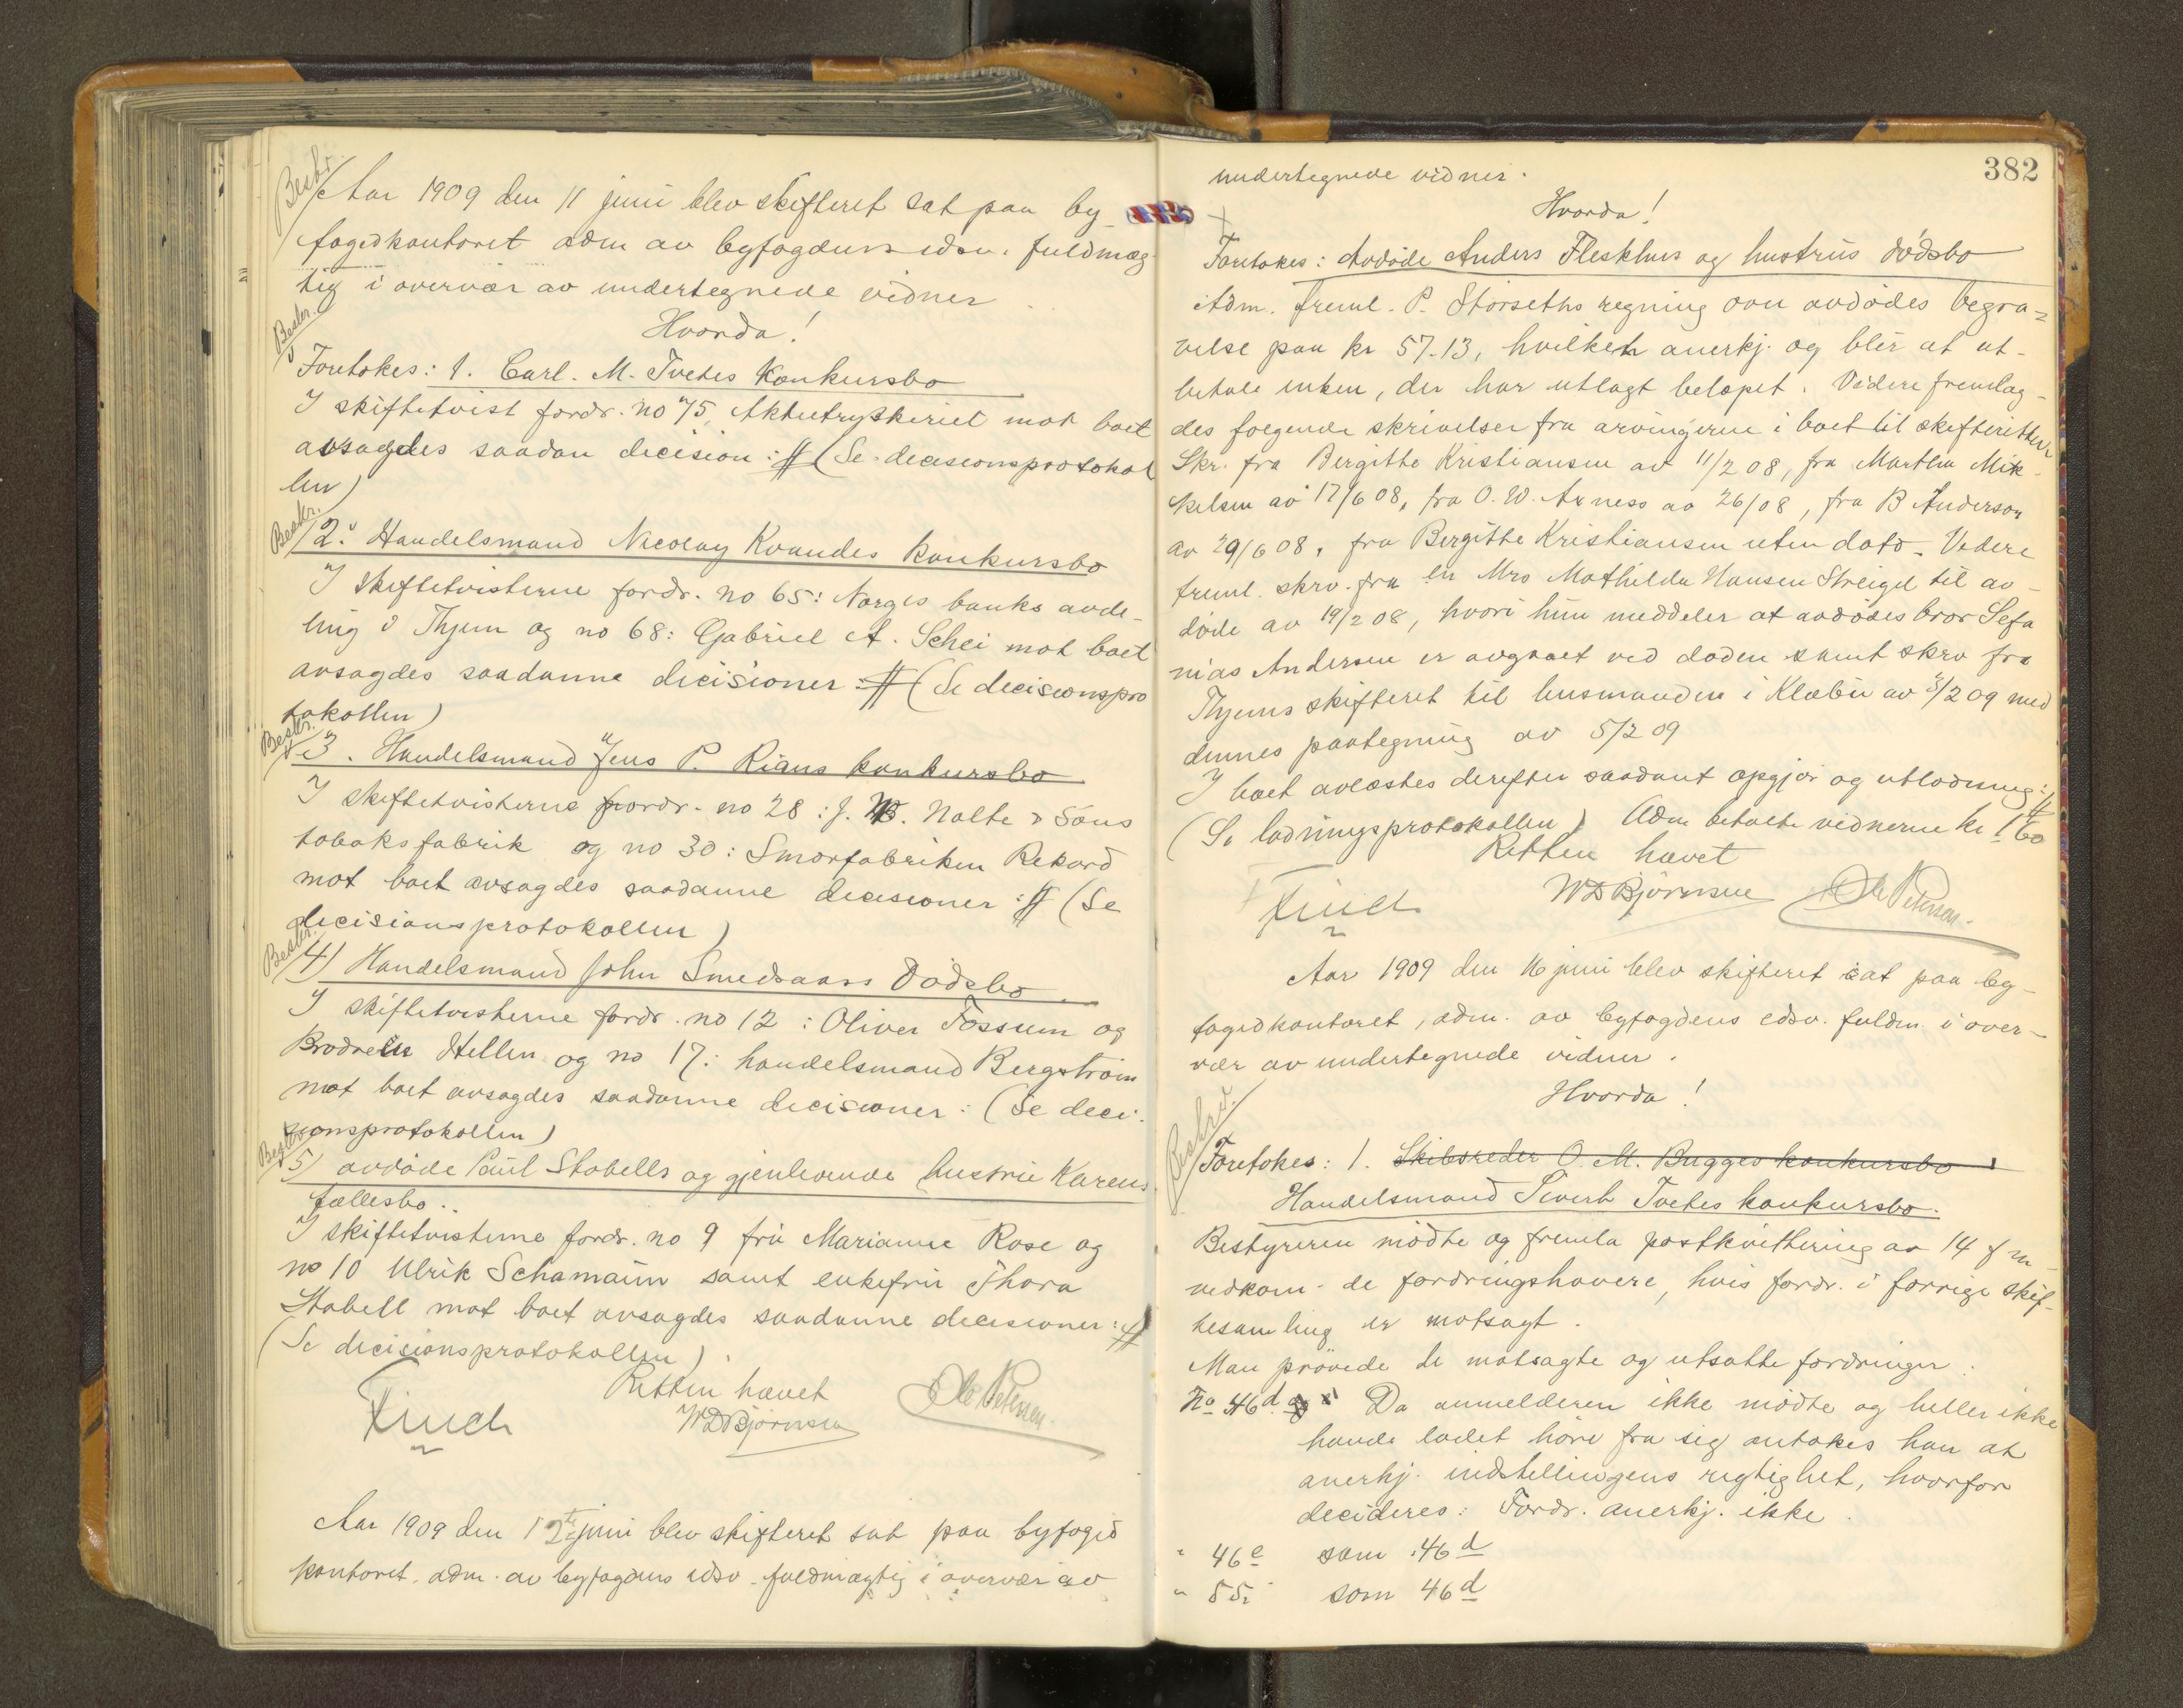 Beskr.
Aar 1909 den 11 juni blev skifteret sat paa by-
fogedkontoret adm av byfogdens edsv. fuldmæg-
tig i overvær av undertegnede vidner
Hvorda!
Beskr.
Foretokes: 1. Carl. M. Tvetes konkursbo
I skiftetvist fordr. no 75, Aktietrykkeriet mot boet
avsagdes saadan decision: # (Se decisionsprotokol
len)
Beskr.
2. Handelsmand Nicolay Kvandes konkursbo
I skiftetvisterne fordr. no 65: Norges banks avde-
ling i Thjem og no 68: Gabriel A. Schei mot boet
avsagdes saadanne decisioner: # (Se decisionspro
tokollen)
Beskr.
3. Handelsmand Jens P. Rians konkursbo
I skiftetvisterne fordr. no 28: J. W. Nolte & Søns
tobaksfabrik og no 30: Smørfabriken Rekord
mot boet avsagdes saadanne decisioner: # (Se
decisionsprotokollen)
Beskr.
4) Handelsmand John Smedsaass Dødsbo
I skiftetvisterne fordr. no 12: Oliver Fossum og
Brødrene Hellem og no 17: handelsmand Bergstrøm
mot boet avsagdes saadanne decisioner: (Se deci-
sionsprotokollen)
Beskr.
5) avdøde Paul Stabells og gjenlevende hustru Karens
fællesbo..
I skiftetvisterne fordr. no 9 fru Marianne Rose og
no 10 Ulrik Schamann samt enkefru Thora
Stabell mot boet avsagdes saadanne decisioner: #
(Se decisionsprotokollen).
Retten hævet
Finch WDBjørnsen Ole Petersen.
Aar 1909 den 12te juni blev skifteret sat paa byfoged
kontoret, adm. av byfogdens edsv. fuldmægtig i overvær av
382
undertegnede vidner.
Hvorda!
Foretokes: Avdøde Anders Fleskhus og hustrus dødsbo
Adm. freml. P. Størseths regning ovn avdødes begra=
velse paa kr 57.13, hvilken anerkj. og blir at ut-
betale enken, der har utlagt beløpet. Videre fremlag-
des følgende skrivelser fra arvingerne i boet til skifteretten
Skr. fra Bergitte Kristiansen av 11/2 08, fra Martha Mik-
kelsen av 17/6 08, fra O. W. Axness av 26/08, fra B Anderson
av 29/6 08, fra Bergitte Kristiansen uten dato. Videre
freml. skrv. fra en Mrs Mathilda Hansen Streigel til av-
døde av 19/2 08, hvori hun meddeler at avdødes bror Sefa
nias Andersen er avgaaet ved døden samt skrv fra
Thjems skifteret til lensmanden i Klæbu av 3/2 09 med
dennes paategning av 5/2 09
I boet avlæstes derefter saadant opgjør og utlodning: #
(Se lodningsprotokollen) Adm betalte vidnerne kr 1 60
Retten hævet
Finch WDBjørnsen Ole Petersen.
Aar 1909 den 16 juni blev skifteret sat paa by-
fogedkontoret, adm. av byfogdens edsv. fuldm. i over-
vær av undertegnede vidner.
Hvorda!
Beskr.
Foretokes: 1. Skibsreder O. M. Bugges konkursbo
Handelsmand Sivert Tvetes konkursbo.
Bestyreren mødte og fremla postkvittering av 14 f m
vedkom. de fordringshavere, hvis fordr. i forrige skif-
tesamling er motsagt.
Man prøvede de motsagte og utsatte fordringer.
No 46d Da anmelderen ikke mødte og heller ikke
havde ladet høre fra sig antokes han at
anerkj. indstillingens rigtighet, hvorfor
decideres: Fordr. anerkj. ikke.
" 46e som 46d
" 55 som 46d